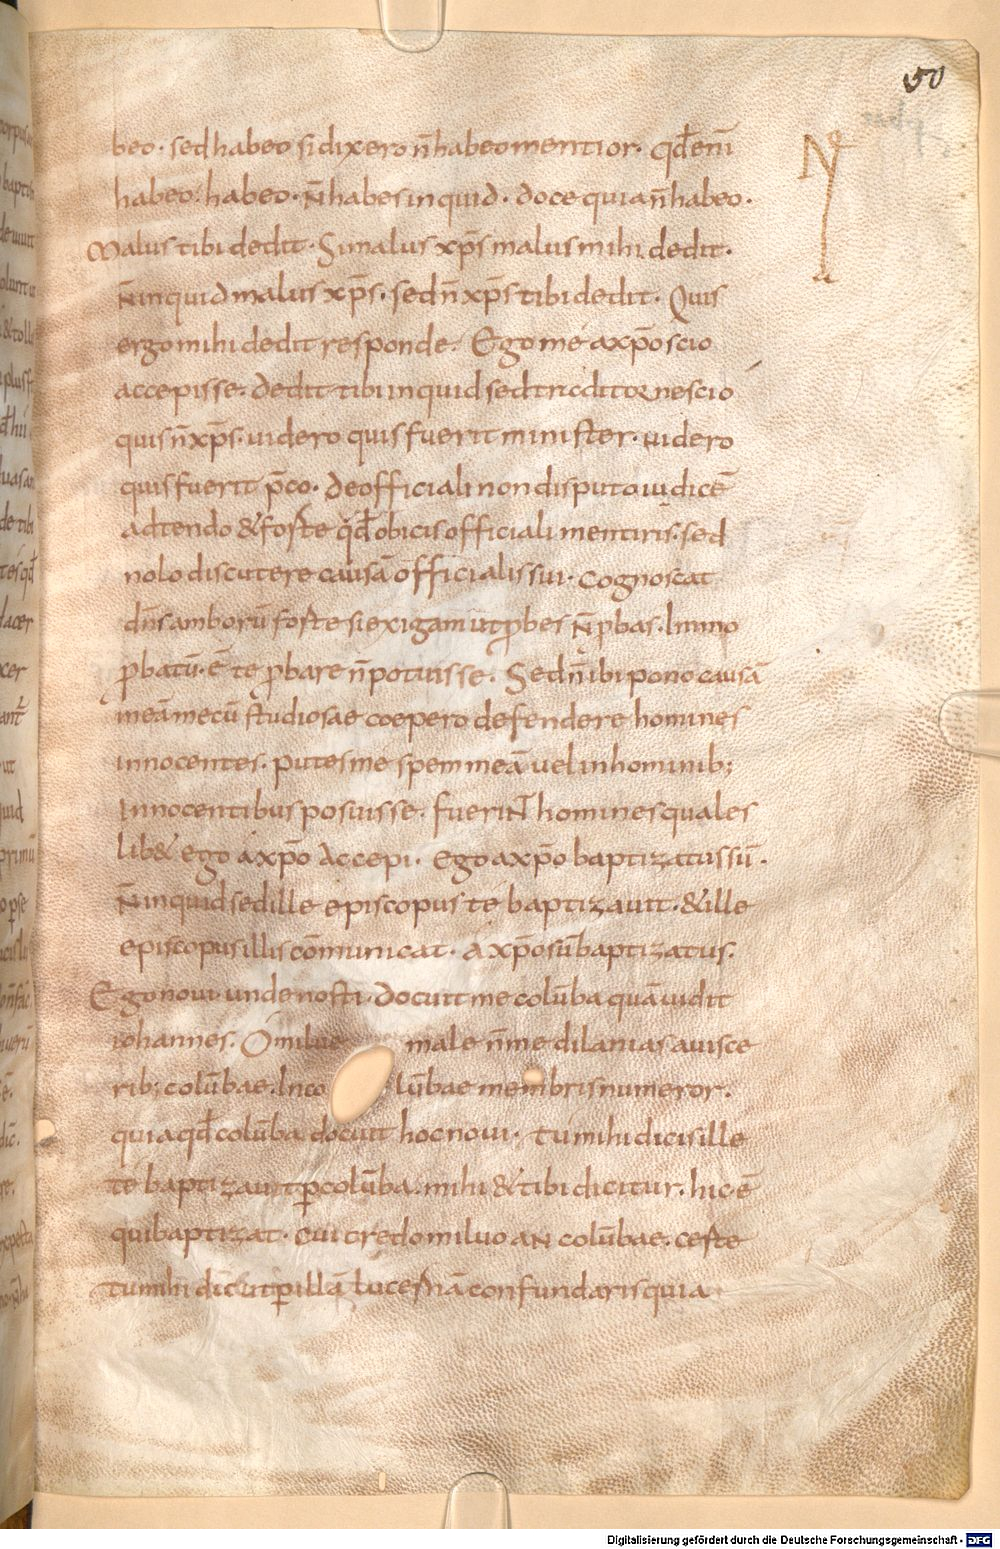 50
beo. sed habeo si dixero n̄ habeo mentior. qđ enī
habeo. habeo. N̄ habes inquid. doce quia n̄ habeo.
Malus tibi dedit. Si malus xp̄s malus mihi dedit.
N̄ inquid malus xp̄s. sed n̄ xp̄s tibi dedit. Quis
ergo mihi dedit responde. Ego me a xp̄o scio
accepisse. dedit tibi inquid sed traditor nescio
quis n̄ xp̄s. uidero quis fuerit minister. uidero
quis fuerit p̄co. de officiali non disputo iudicē
adtendo & forte qđ obicis officiali mentiris. sed
nolo discutere causā officialis sui. cognoscat
dn̄s amborū forte si exigam ut ꝓbes N̄ ꝓbas. Immo
ꝓbatū. ē te ꝓbare n̄ potuisse. Sed n̄ ibi pono causā
meā mecū studiosae coepero defendere homines
innocentes. putes me spem meā uel in hominib;
Innocentibus posuisse. fueriNt homines quales
lib& ego a xp̄o accepi. ego a xp̄o baptizatus sū.
N̄ inquid sed ille episcopus te baptizauit. & ille
episcopus illis cōmunicat. A xp̄o sū baptizatus.
Ego noui. unde nosti. docuit me colūba quā uidit
iohannes. O milue male n̄ me dilanias a uisce
rib; colūbae. In colūbae membris numeror.
quia qđ colūba docuit hoc noui. tu mihi dicis ille
te baptizauit ꝑ colūba. mihi & tibi dicitur. hic ē
qui baptizat. cui credo miluo aN colūbae. certe
tu mihi dic̄ ut ꝑ illā lucernā confundaris quia